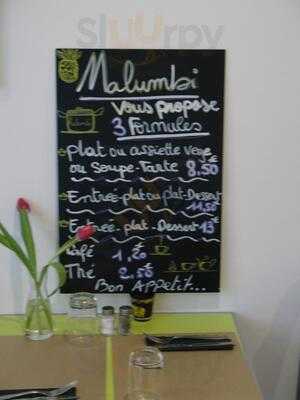 Malumbi
vous propose
3 Formules
Plat ou assiette vege
ou Soupe-Tarte 8,50€
Entrée-plat ou plat-Dessert
11,50
Entrée-plat-Dessert 13€
Café 1,20€
Thé 2,50€
Bon Appetit...